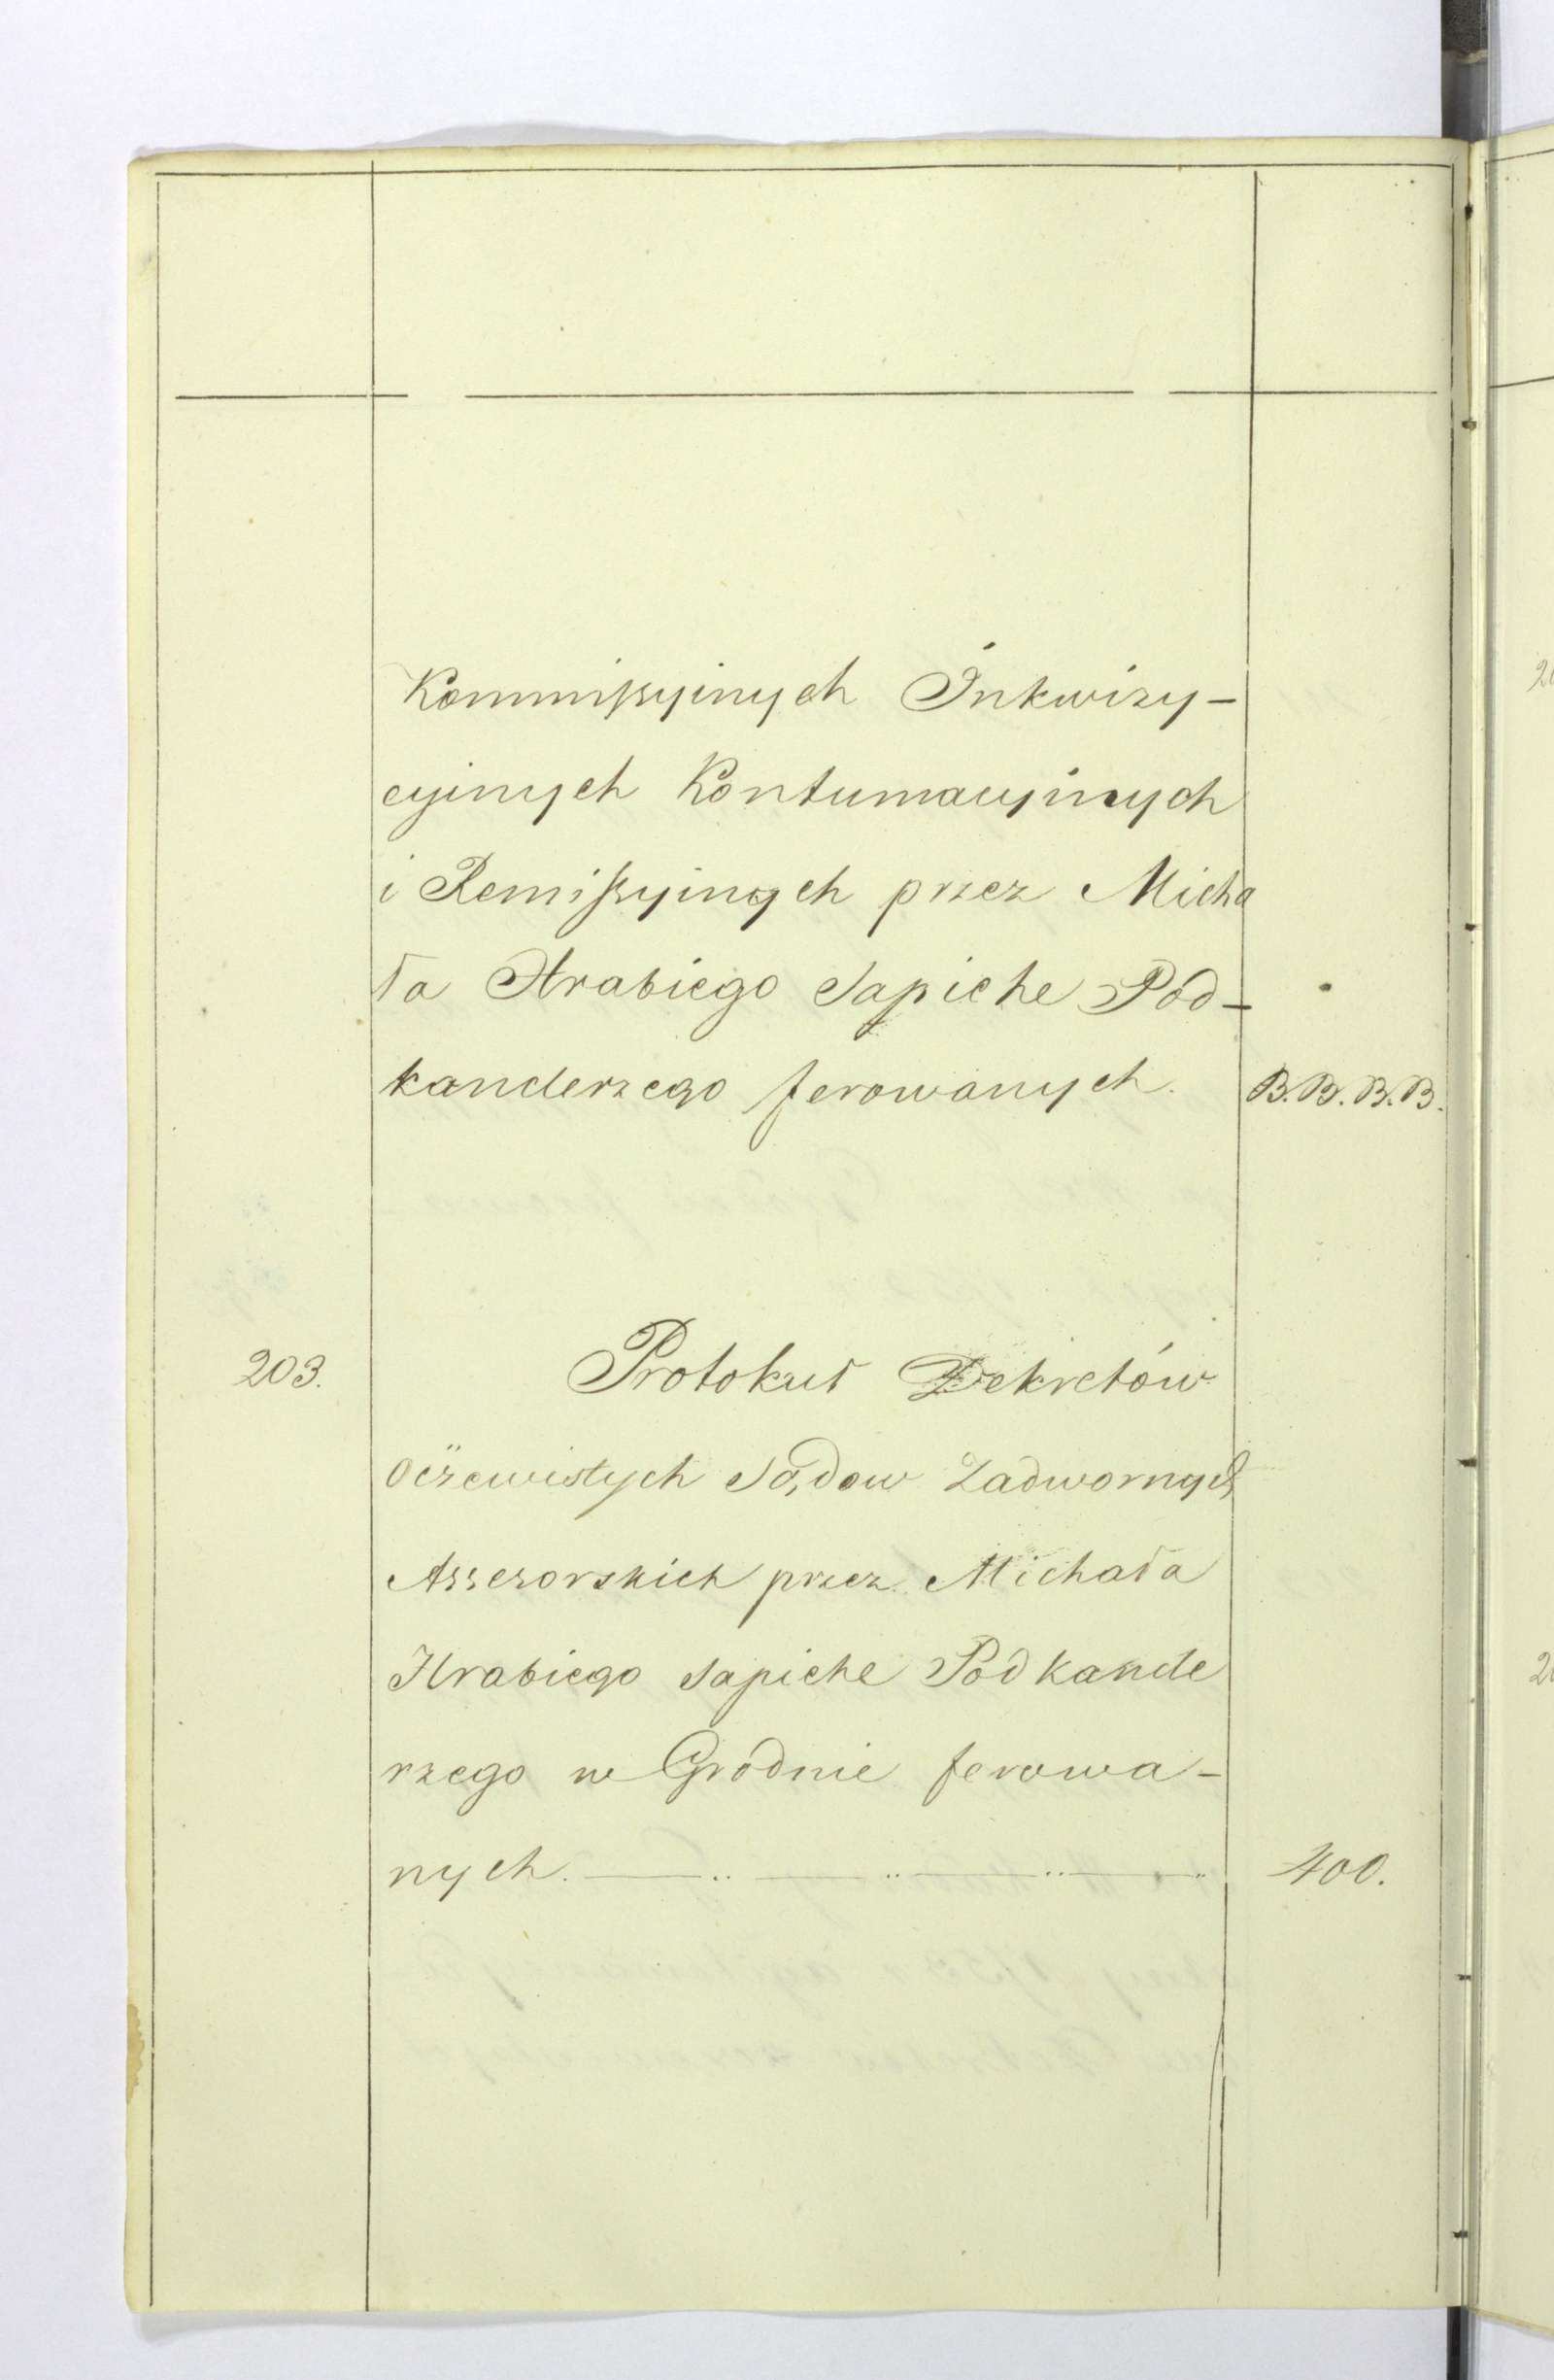 Kommissyinych Inkwizy-
cyinych Kontumacyinych
i Remissyinych przez Micha
ła Hrabiego Sapiehe Pod-
kanclerzego ferowanych. B.B.B.B.
203. Protokuł Dekretów
Oczewistych Sądow Zadwornych
Assesorskich przez Michała
Hrabiego Sapiehe Podkancle
rzego w Grodnie ferowa-
nych. 400.